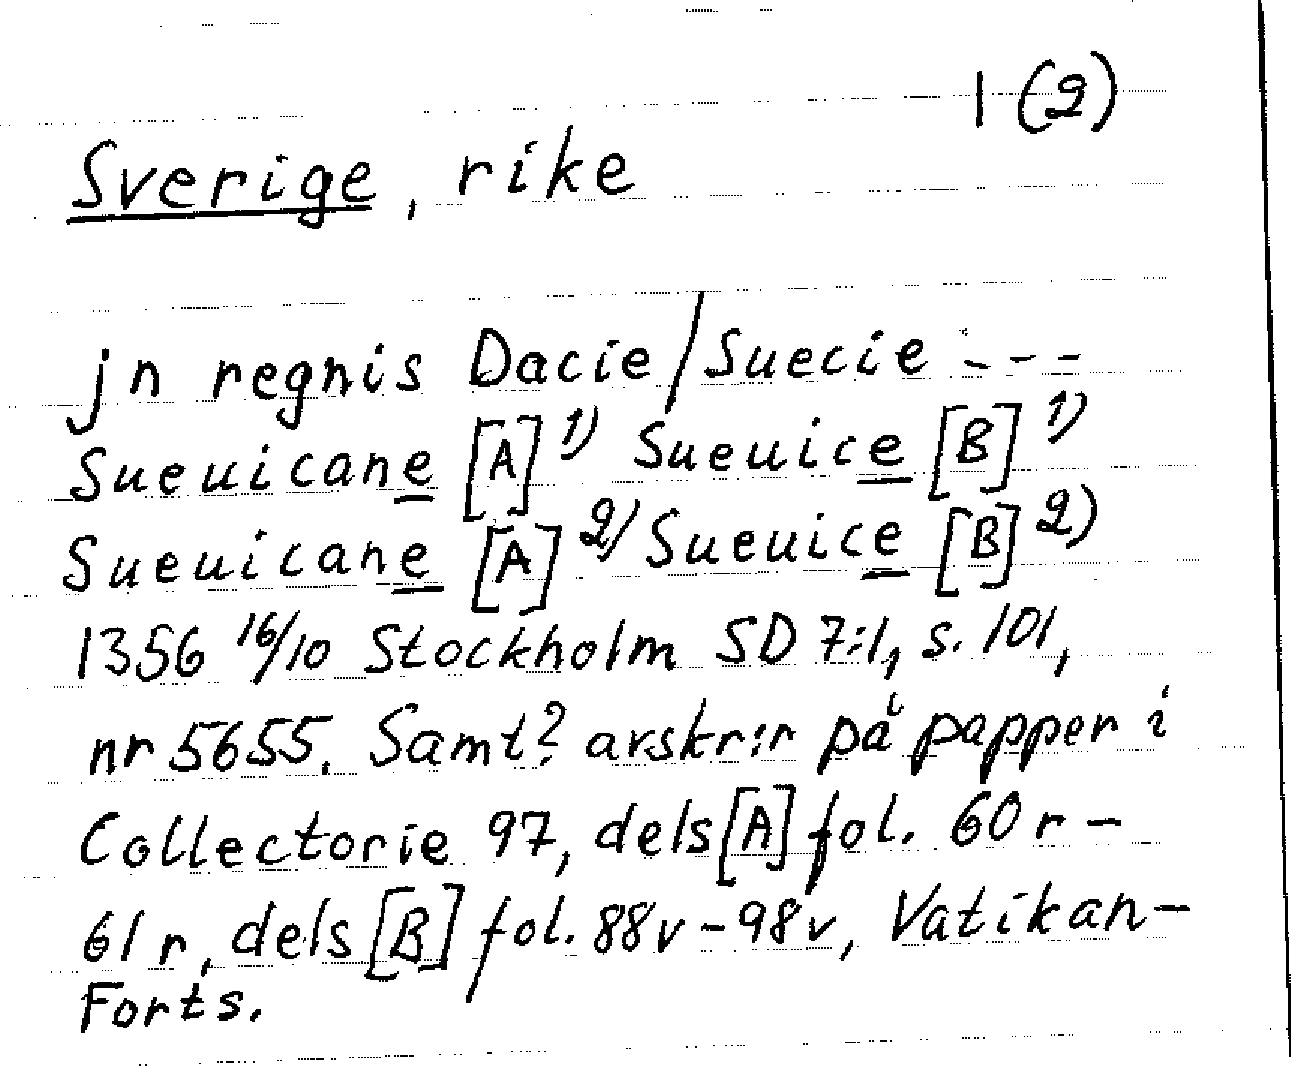 1 (2)
Sverige, rike
jn regnis Dacie/Suecie ---
Sueuicane [A] 1) Sueuice [B] 1)
Sueuicane [A] 2) Sueuice [B] 2)
1356 16/10 Stockholm SD 7:1, s. 101,
nr 5655. Samt? avskr:r på papper i
Collectorie 97, dels [A] fol. 60 r -
61 r, dels [B] fol. 88v - 98v, Vatikan-
Forts.